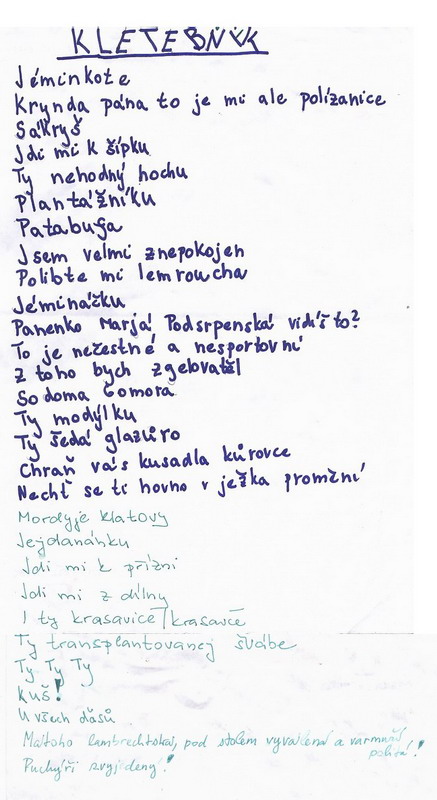 KLETEBNÍK
Jéminkote
Krynda pána to je mi ale polízanice
Sakryš
Jdi mi k šípku
Ty nehodný hochu
Plantážníku
Patabuga
Jsem velmi znepokojen
Polibte mi lemroucha
Jéminačku
Panenko Marjá Podsrpenská vidíš to?
To je nečestné a nesportovní
Z toho bych zgelovatěl
Sodoma Gomora
Ty modýlku
Ty šedá glazůro
Chraň vás kusadla kůrovce
Nechť se ti hovno v ježka promění
Mordyje klatovy
Jejdanánku
Jdi mi k přízni
Jdi mi z dílny
I ty krasavice/krasavče
Ty transplantovanej švábe
Ty Ty Ty
Kuš!
U všech ďasů
lambrechtská, pod stolem vyválená a
politá!
Puchýři zvyjedený!